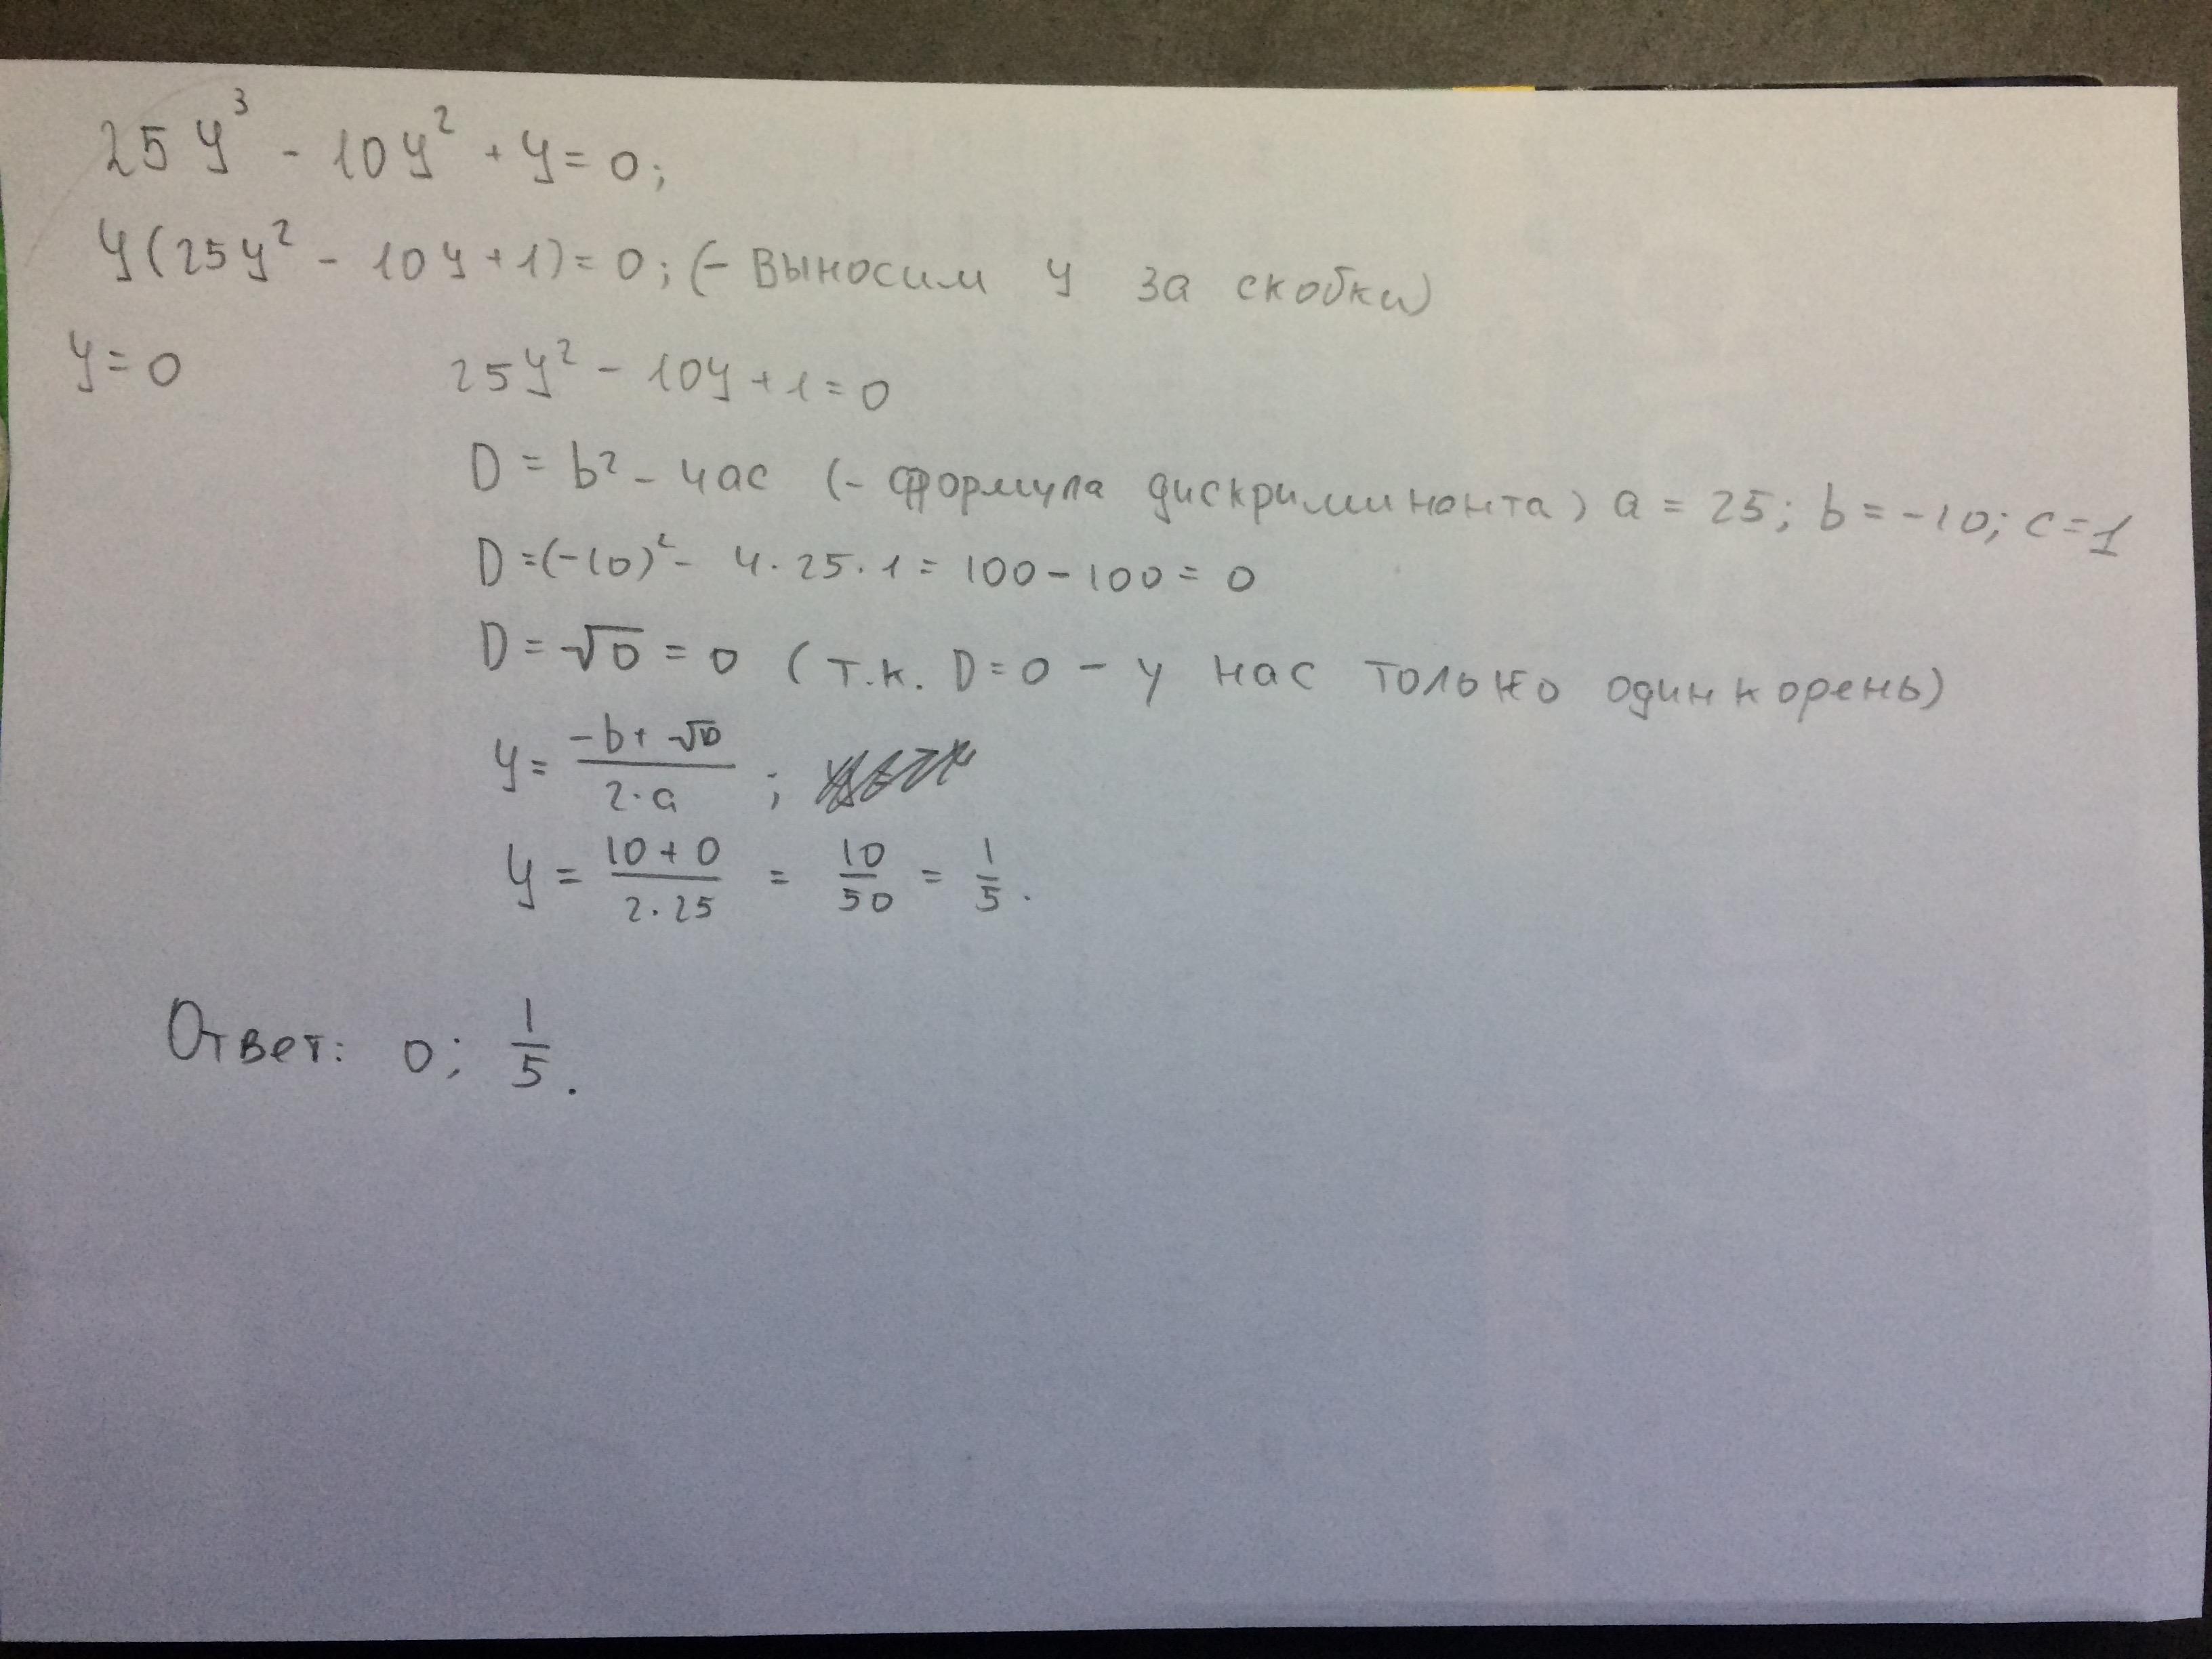 25y³ - 10y² + y = 0;
y(25y² - 10y + 1) = 0; (- выносим y за скобки)
y = 0 25y² - 10y + 1 = 0
D = b² - 4ac (- формула дискриминанта) a = 25; b = -10; c = 1
D = (-10)² - 4 · 25 · 1 = 100 - 100 = 0
D = √0 = 0 (т.к. D = 0 - у нас только один корень)
y = (-b + √D)/(2 · a) ;
y = (10 + 0)/(2 · 25) = 10/50 = 1/5.
Ответ: 0; 1/5.